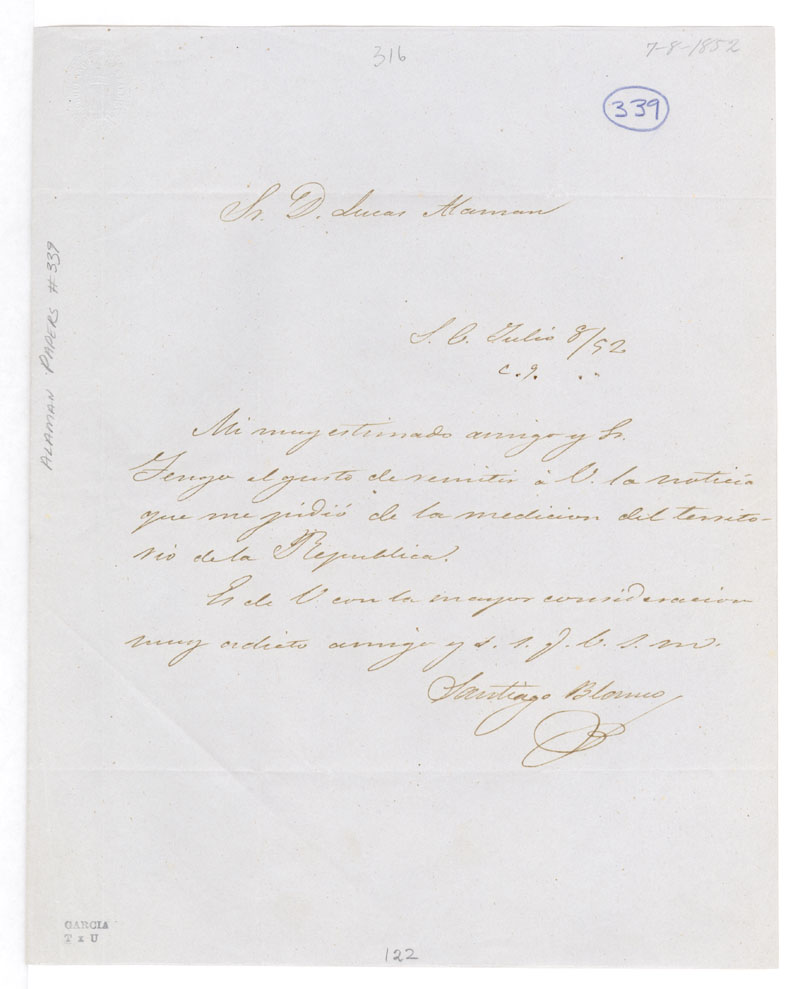 316
7-8-1852
339
Sr. D. Lucas Alaman
ALAMAN PAPERS #339
S. C. Julio 8/52
Mi muy estimado amigo y Sr.
Tengo el gusto de remitir à V. la noticia
que me pidió de la medicion del territo-
rio de la Republica.
Es de V. con la mayor consideracion
muy adicto amigo y s. s. q. b. s. m.
Santiago Blanco
GARCIA
T x U
122